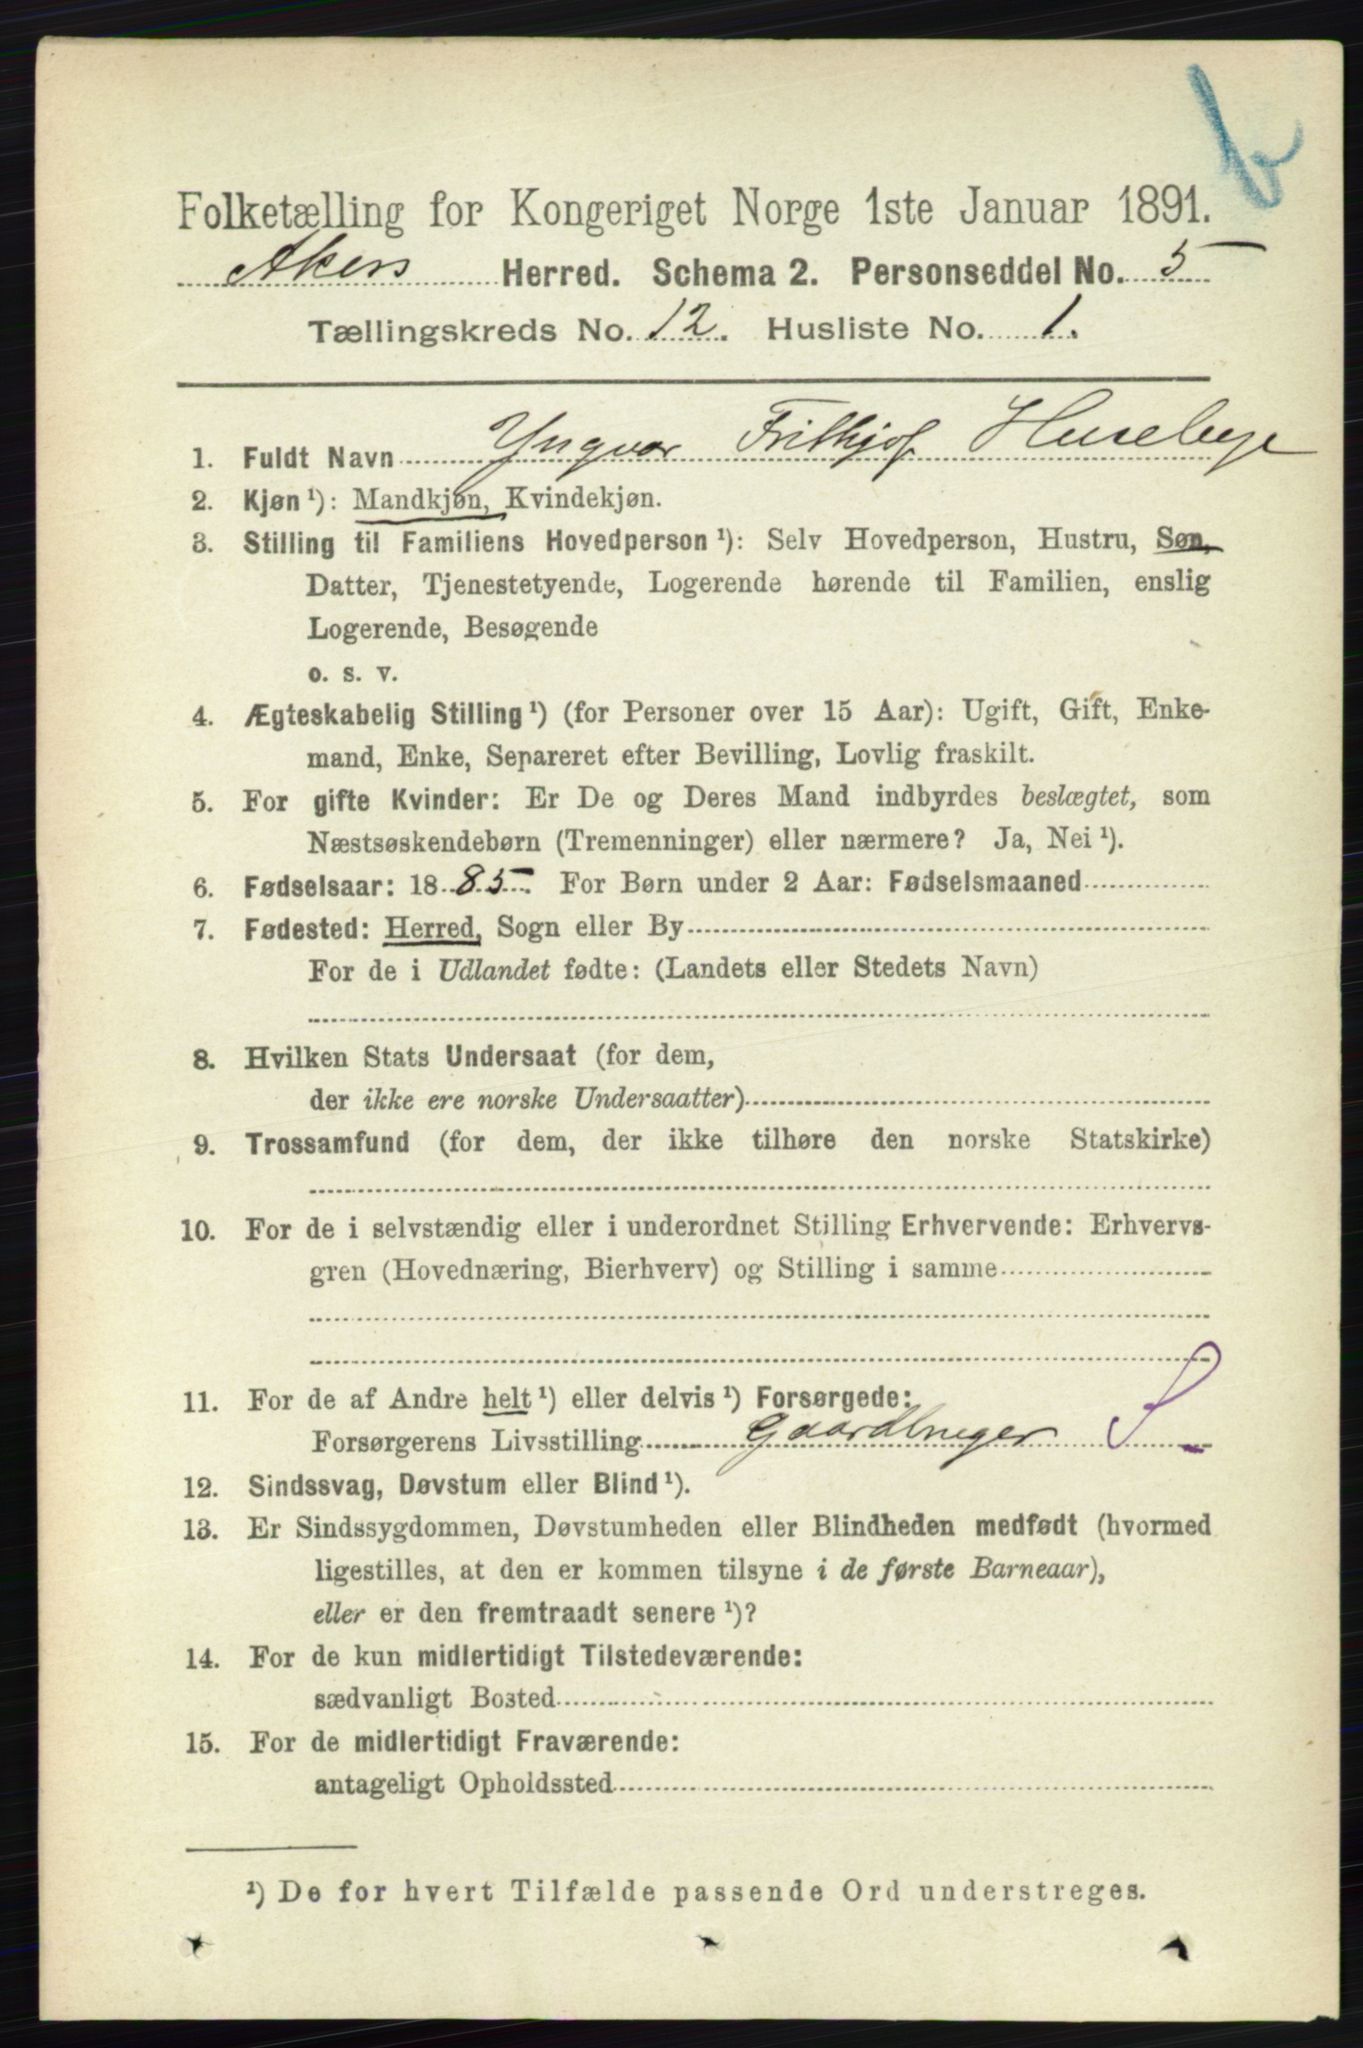 b
Folketælling for Kongeriget Norge 1ste Januar 1891.
Akers Herred. Schema 2. Personseddel No. 5
Tællingskreds No. 12. Husliste No. 1.
1. Fuldt Navn Yngvar Frithjof Husebye
2. Kjøn ¹): Mandkjøn, Kvindekjøn.
3. Stilling til Familiens Hovedperson ¹): Selv Hovedperson, Hustru, Søn,
Datter, Tjenestetyende, Logerende hørende til Familien, enslig
Logerende, Besøgende
o. s. v.
4. Ægteskabelig Stilling ¹) (for Personer over 15 Aar): Ugift, Gift, Enke-
mand, Enke, Separeret efter Bevilling, Lovlig fraskilt.
5. For gifte Kvinder: Er De og Deres Mand indbyrdes beslægtet, som
Næstsøskendebørn (Tremenninger) eller nærmere? Ja, Nei ¹).
6. Fødselsaar: 1885. For Børn under 2 Aar: Fødselsmaaned
7. Fødested: Herred, Sogn eller By
For de i Udlandet fødte: (Landets eller Stedets Navn)
8. Hvilken Stats Undersaat (for dem,
der ikke ere norske Undersaatter)
9. Trossamfund (for dem, der ikke tilhøre den norske Statskirke)
10. For de i selvstændig eller i underordnet Stilling Erhvervende: Erhvervs-
gren (Hovednæring, Bierhverv) og Stilling i samme
11. For de af Andre helt ¹) eller delvis ¹) Forsørgede:
Forsørgerens Livsstilling Gaardbruger S
12. Sindssvag, Døvstum eller Blind ¹).
13. Er Sindssygdommen, Døvstumheden eller Blindheden medfødt (hvormed
ligestilles, at den er kommen tilsyne i de første Barneaar),
eller er den fremtraadt senere ¹)?
14. For de kun midlertidigt Tilstedeværende:
sædvanligt Bosted
15. For de midlertidigt Fraværende:
antageligt Opholdssted
¹) De for hvert Tilfælde passende Ord understreges.